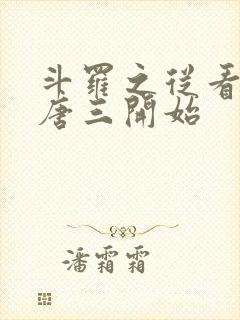 斗羅之從看
唐三開始
潘霜霜